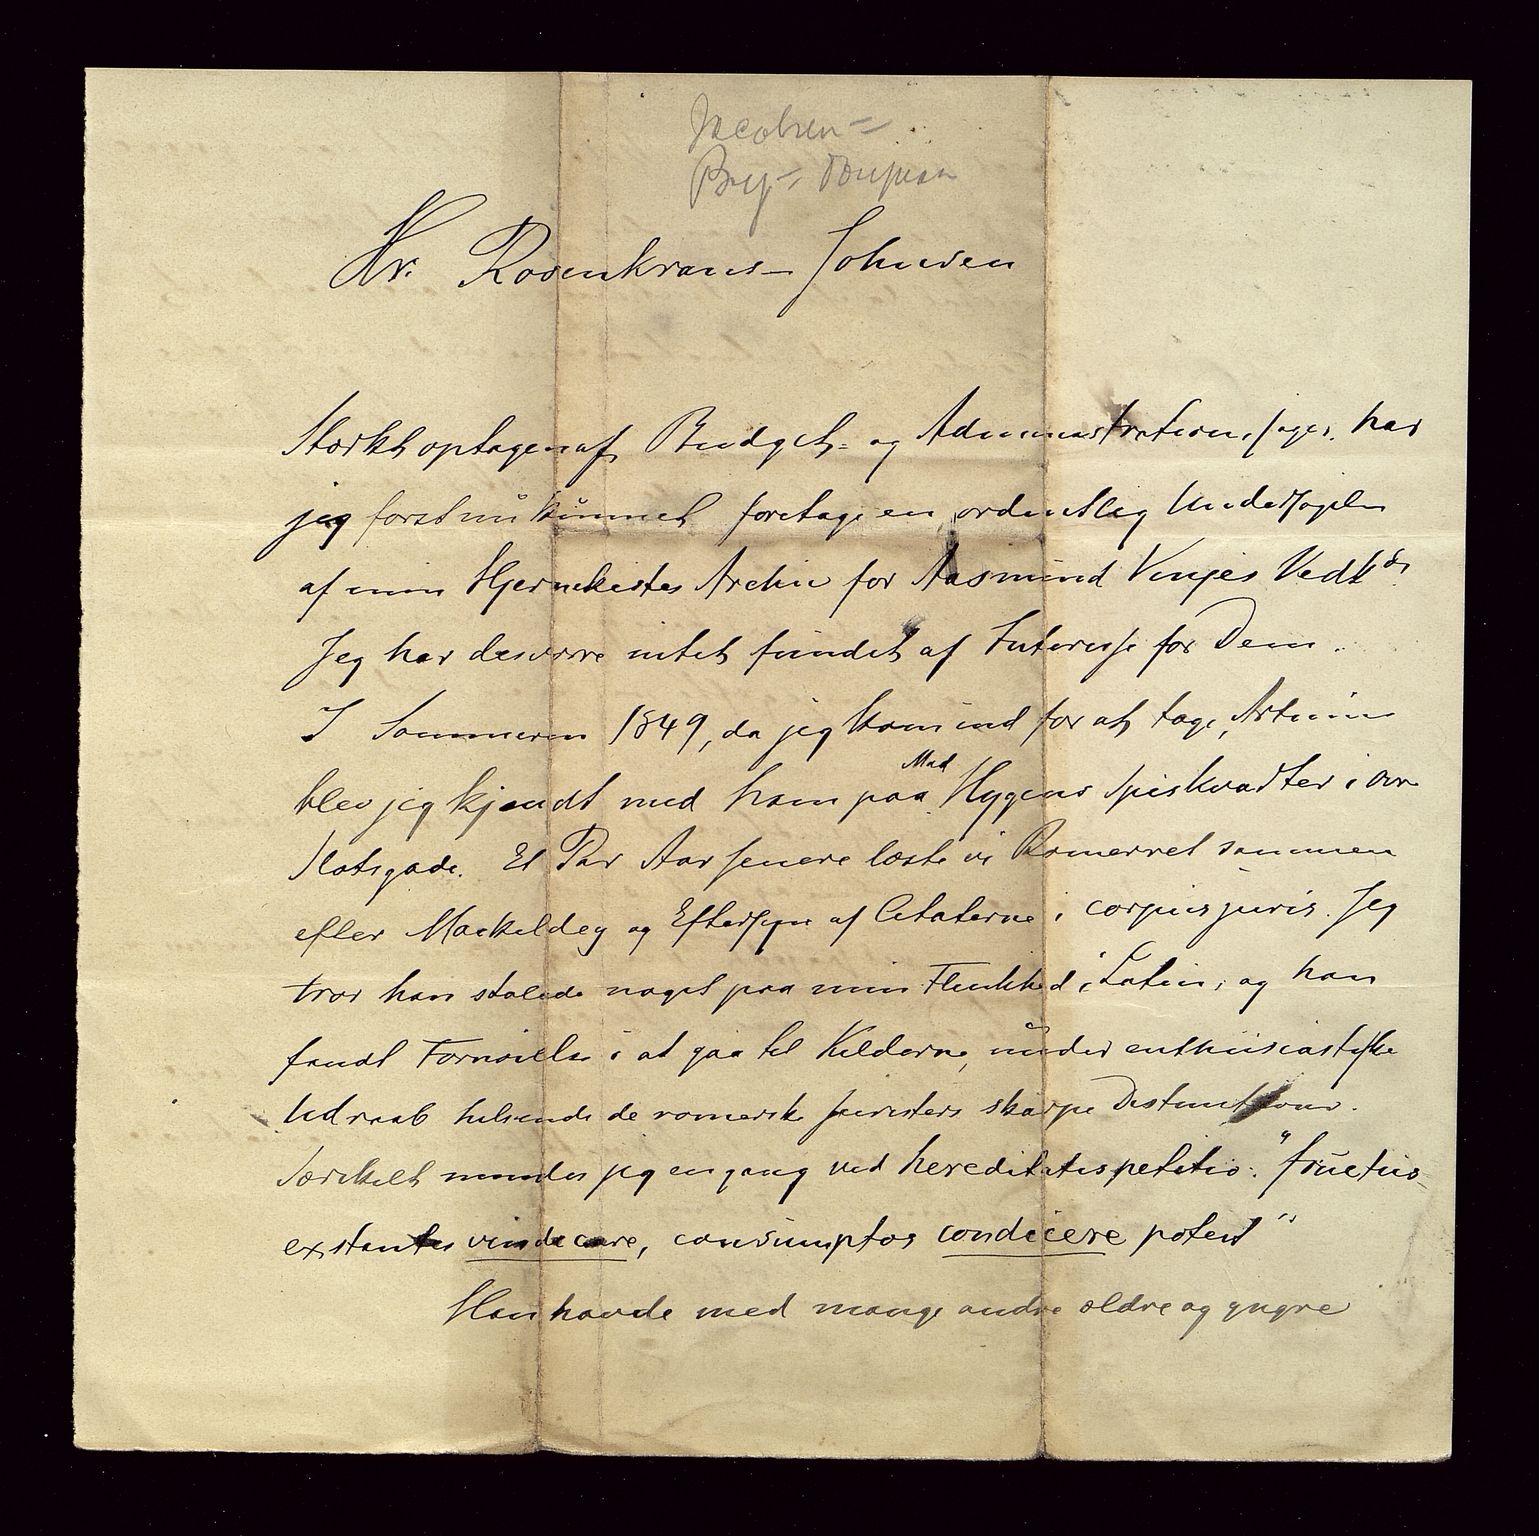 Jacobsen =
Hr. Rosenkrans-Johnsen
Stærkt optagen af Budget- og Administrations sager, har
jeg først nu kunnet foretage en ordentlig Undersøgelse
af min Hjernekistes Archiv for Aasmund Vinjes Vedk
Jeg har desværre intet fundet af Interesse for Dem.
I Sommeren 1849, da jeg kom ind for at tage Artium
blev jeg kjendt med ham paa Mad Hygens Spiskvarter i øvre
Slotsgade. Et Par Aar senere læste vi Romerret sammen
efter Mackeldey og Eftersyn af Citaterne i corpus juris. Jeg
tror han stolede noget paa min Flinkhed i Latin, og han
fandt Fornøielse i at gaa til Kilderne, under enthusiastiske
Udraab hilsende de romerske Juristers skarpe Distinktioner.
Særskilt mindes jeg engang ved hereditatis petitio: "fructus
existantes vindicare, consumptos condicere potest"
Han havde med mange andre ældre og yngre